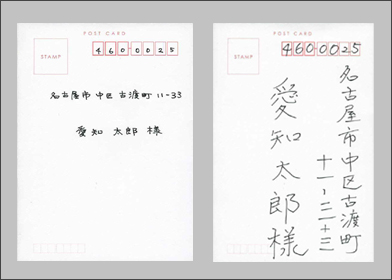 POST CARD
STAMP
4600025
名古屋市中区古渡町11-33
愛知 太郎 様
POST CARD
STAMP
4600025
名古屋市中区古渡町
十一-三十三
愛知太郎様